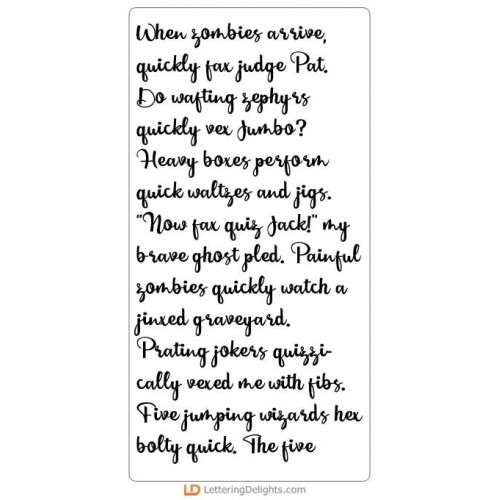 When zombies arrive,
quickly fax judge Pat.
Do wafting zephyrs
quickly vex Jumbo?
Heavy boxes perform
quick waltzes and jigs.
"Now fax quiz Jack!" my
brave ghost pled. Painful
zombies quickly watch a
jinxed graveyard.
Prating jokers quizzi-
cally vexed me with fibs.
Five jumping wizards hex
bolty quick. The five
LD LetteringDelights.com